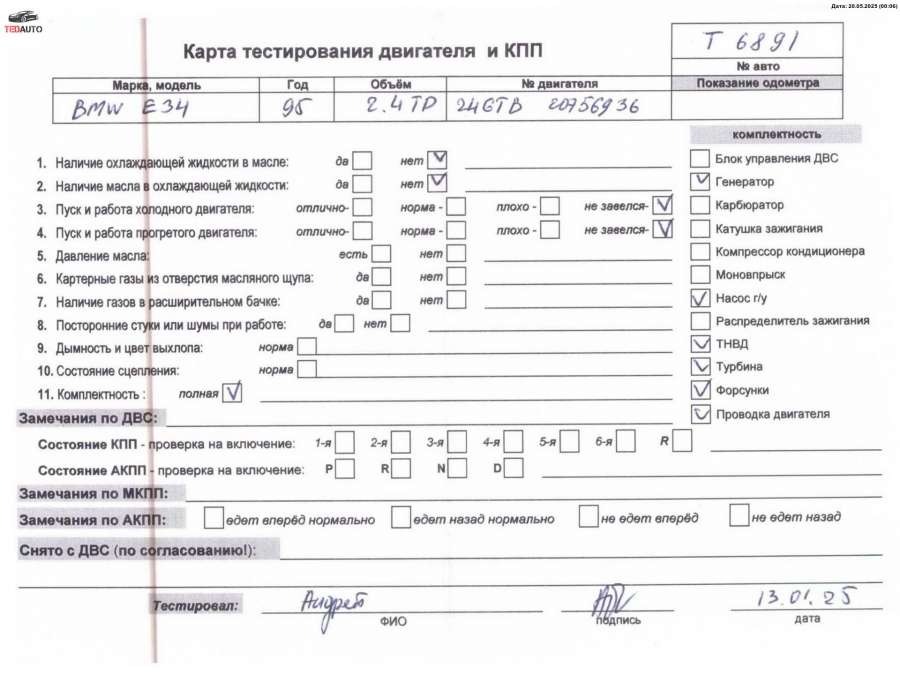 Дата: 20.05.2025 (00:06)
TEDAUTO
Карта тестирования двигателя и КПП
T 6891
№ авто
Марка, модель Год Объём № двигателя Показание одометра
BMW E34 95 2.4 TD 24GTB 20756936
комплектность
1. Наличие охлаждающей жидкости в масле: да нет
2. Наличие масла в охлаждающей жидкости: да нет
3. Пуск и работа холодного двигателя: отлично- норма - плохо - не завелся-
4. Пуск и работа прогретого двигателя: отлично- норма - плохо - не завелся-
5. Давление масла: есть нет
6. Картерные газы из отверстия масляного щупа: да нет
7. Наличие газов в расширительном бачке: да нет
8. Посторонние стуки или шумы при работе: да нет
9. Дымность и цвет выхлопа: норма
10. Состояние сцепления: норма
11. Комплектность : полная
Блок управления ДВС
Генератор
Карбюратор
Катушка зажигания
Компрессор кондиционера
Моновпрыск
Насос г/у
Распределитель зажигания
ТНВД
Турбина
Форсунки
Проводка двигателя
Замечания по ДВС:
Состояние КПП - проверка на включение: 1-я 2-я 3-я 4-я 5-я 6-я R
Состояние АКПП - проверка на включение: P R N D
Замечания по МКПП:
Замечания по АКПП: едет вперёд нормально едет назад нормально не едет вперёд не едет назад
Снято с ДВС (по согласованию!):
Тестировал: Андрей 13.01.25
ФИО подпись дата